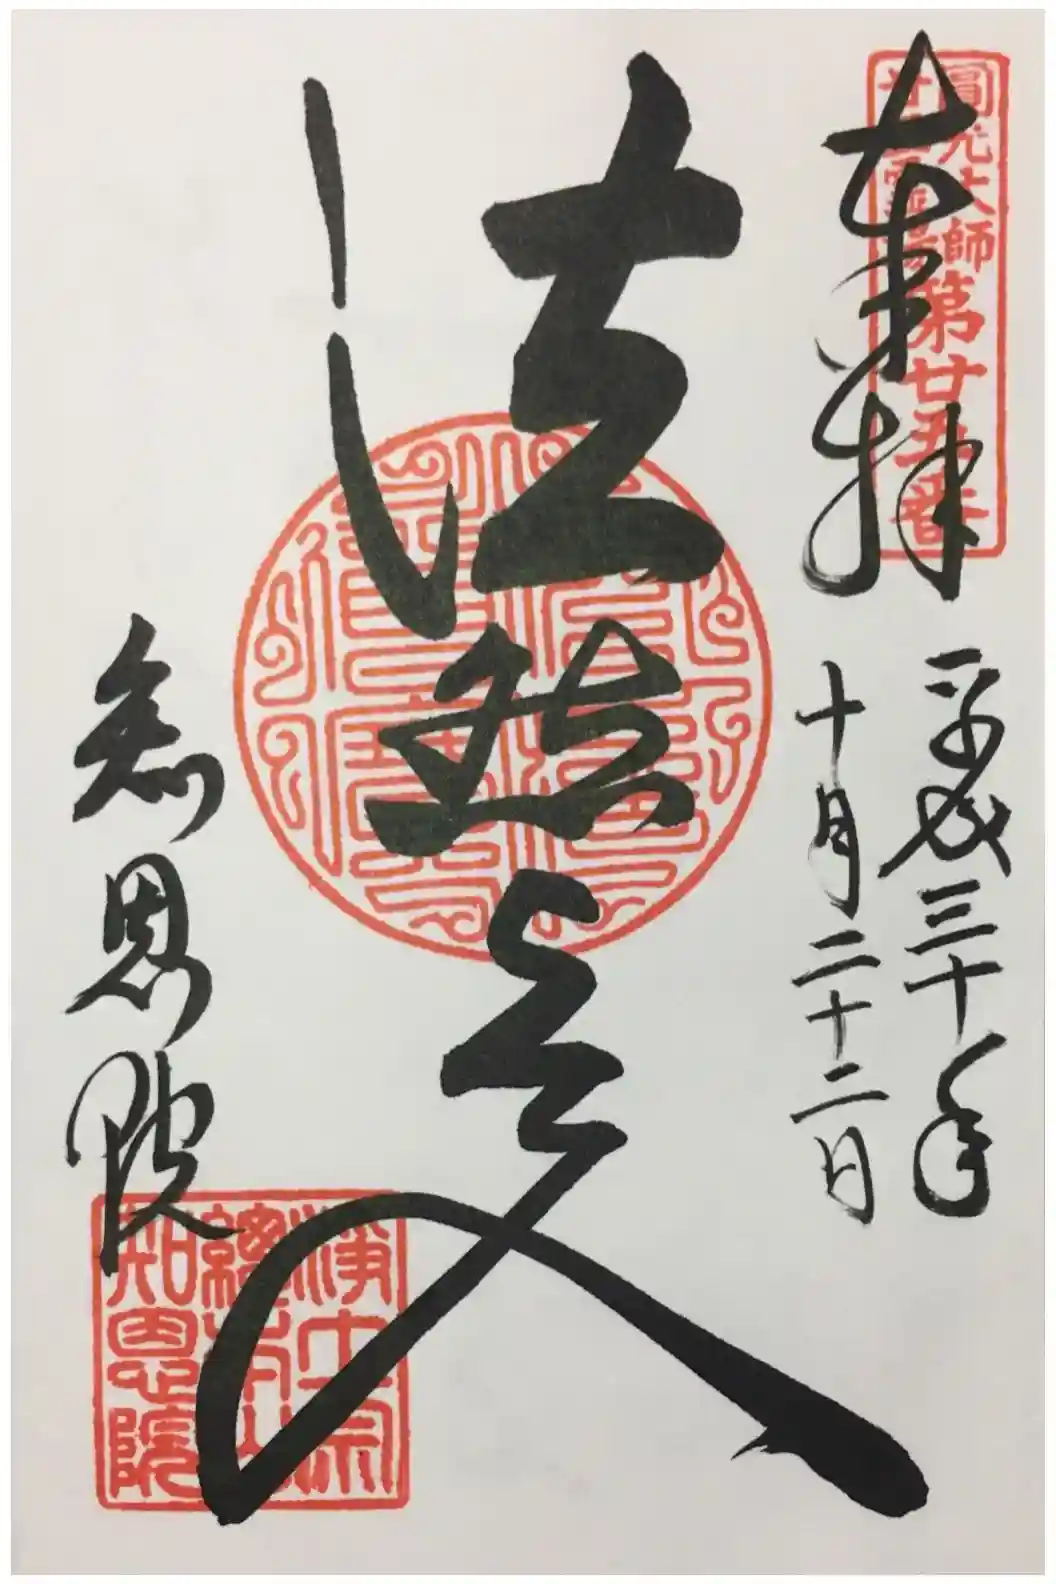 奉拝
圓光大師
廿五霊場
第廿五番
平成三十年
十月二十二日
法然上人
知恩院
浄土宗
總本山
知恩院